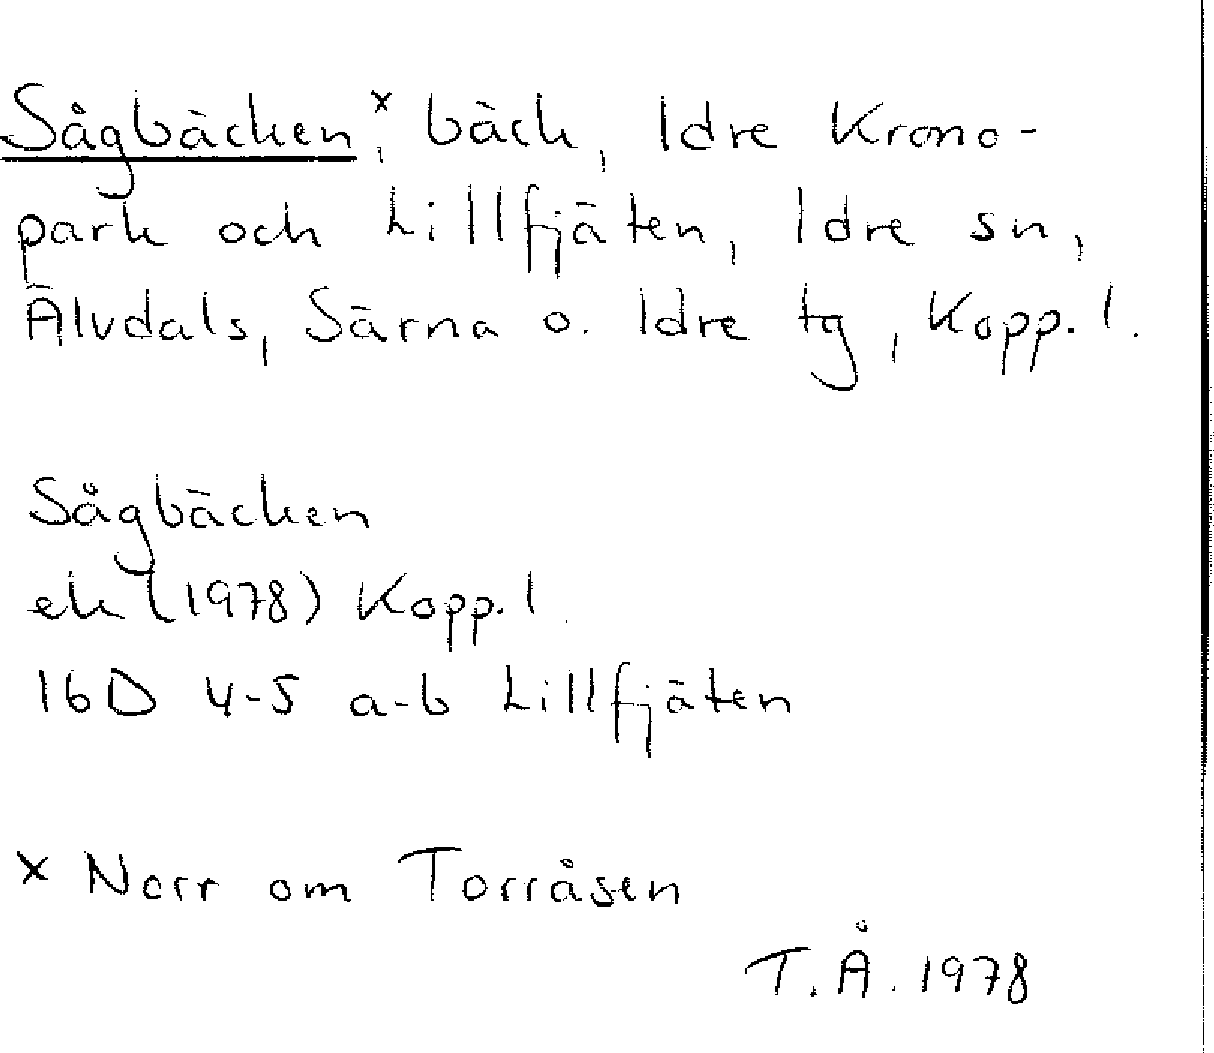 Sågbäcken ˣ, bäck, Idre Krono-
park och Lillfjäten, Idre sn,
Älvdals, Särna o. Idre tg, Kopp. l.
Sågbäcken
ek (1978) Kopp. l.
16D 4-5 a-b Lillfjäten
x Norr om Torråsen
T.Å. 1978